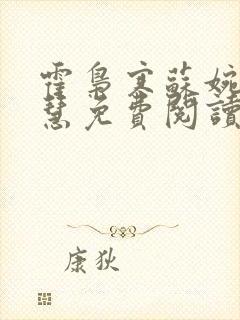 霍梟寒蘇婉
慧免費閱讀
康狄